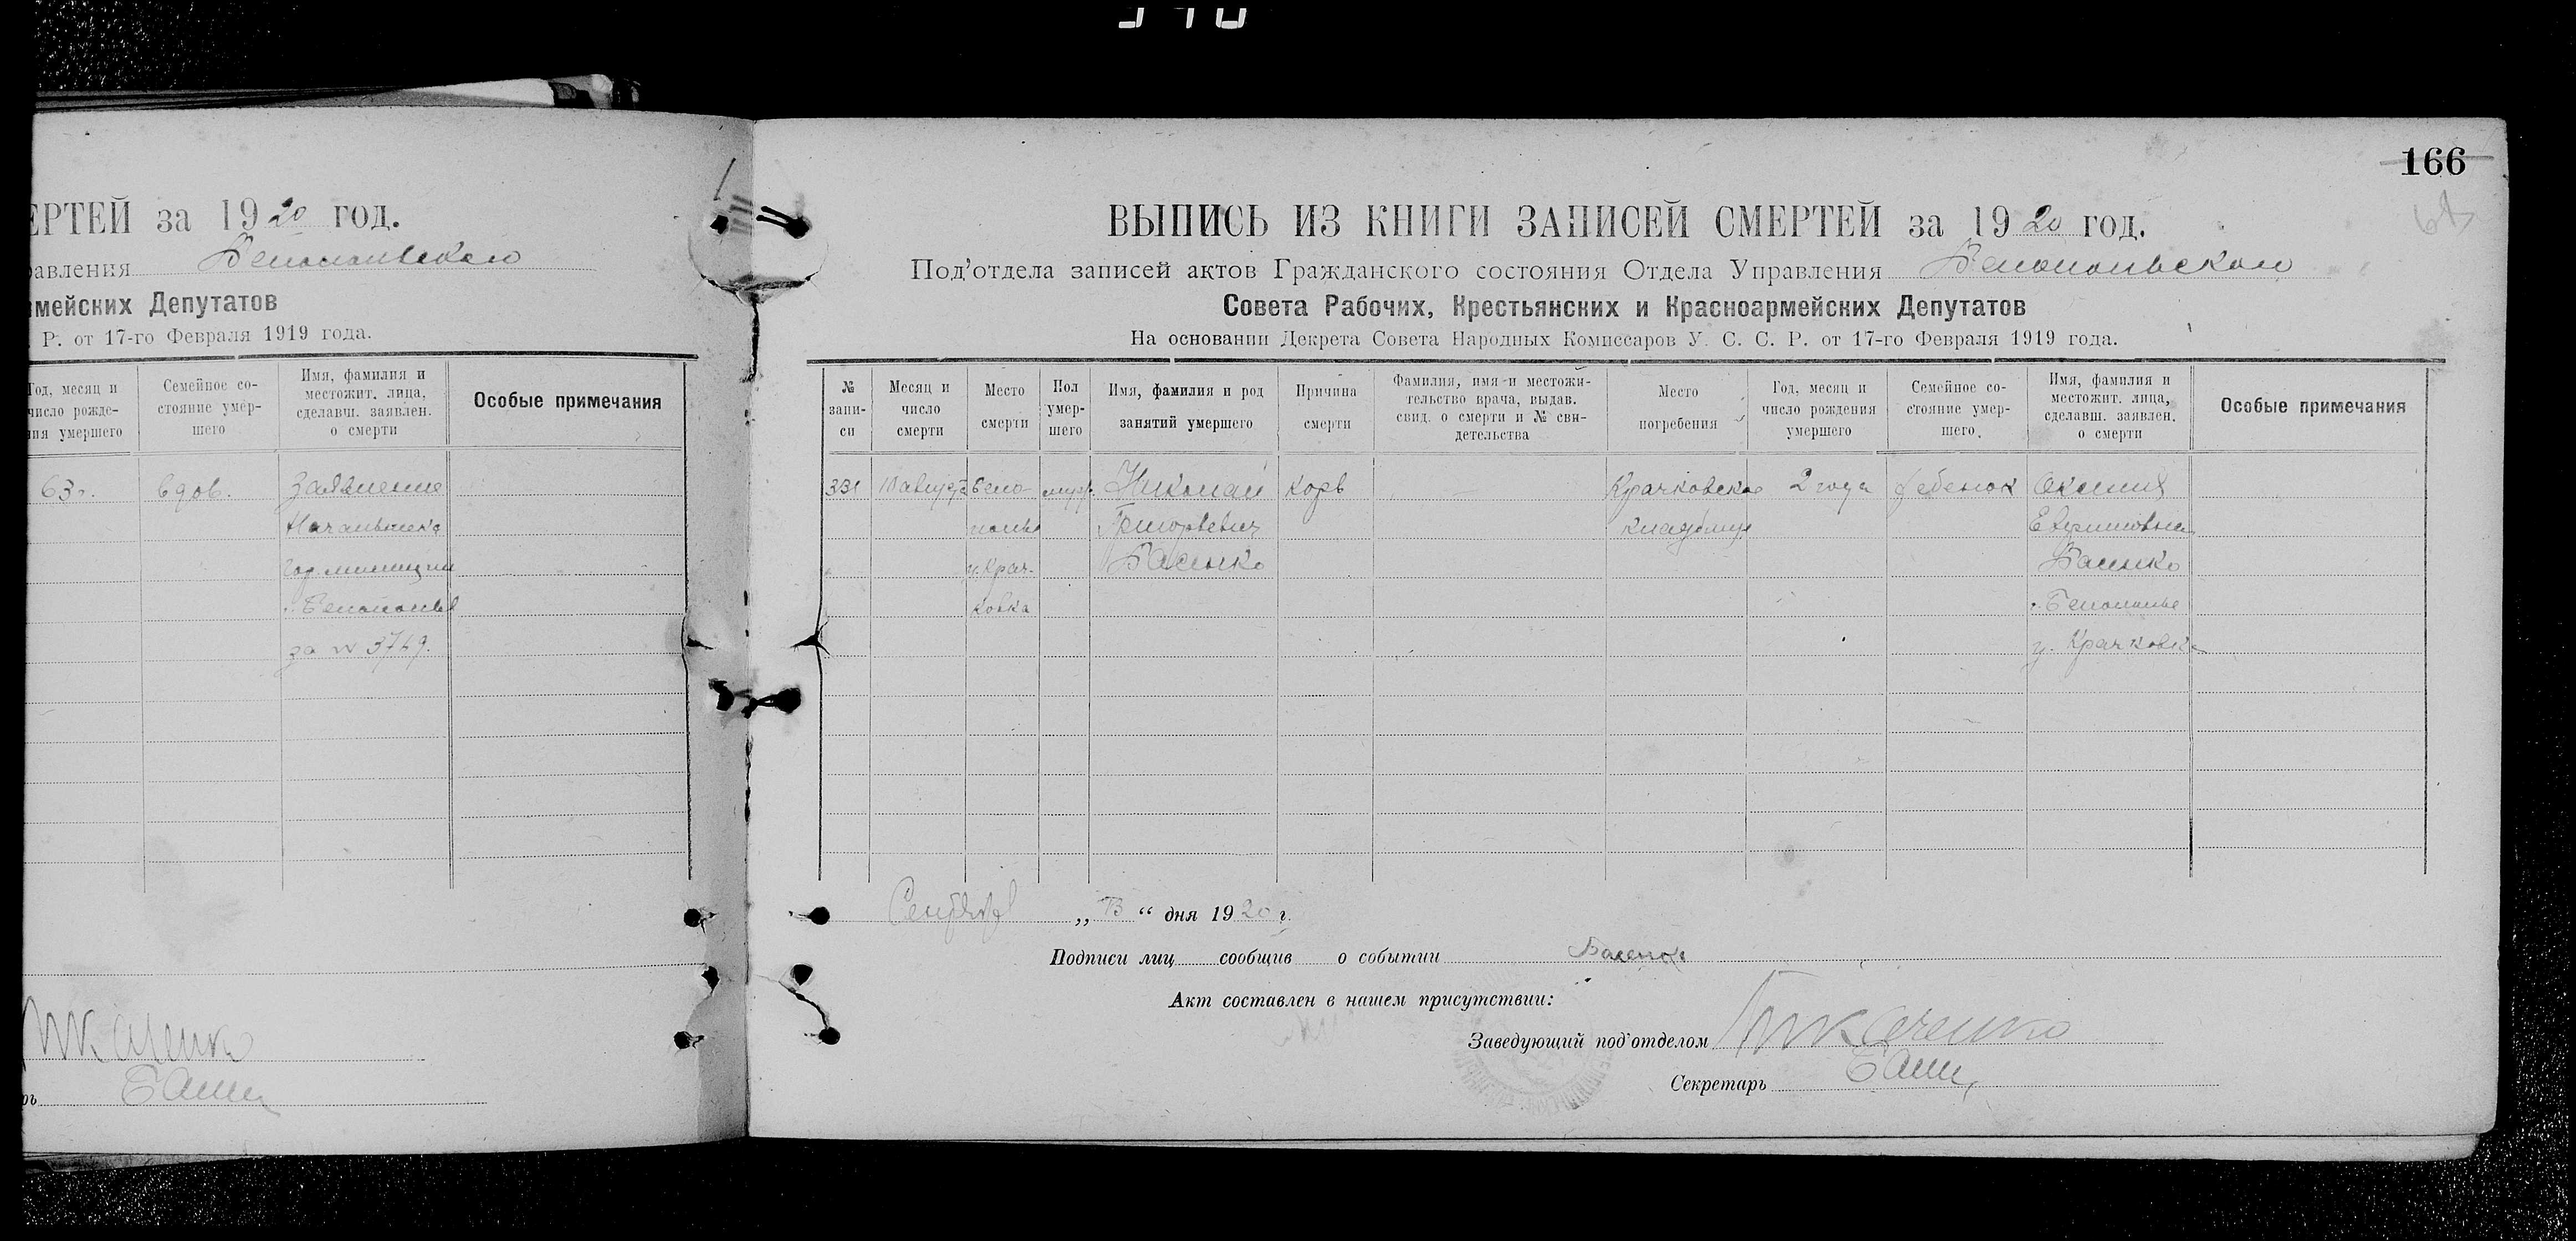 166
ЕРТЕЙ за 1920 год.
равления Белопольского
мейских Депутатов
Р. от 17-го Февраля 1919 года.
Год, месяц и
число рожде-
ния умершего
Семейное со-
стояние умер-
шего
Имя, фамилия и
местожит. лица,
сделавш. заявлен.
о смерти
Особые примечания
63 г.
вдов.
Заявление
Начальника
Гор. милиции
г. Белополье
за № 3749.
Ткаченко
ь
ВЫПИСЬ ИЗ КНИГИ ЗАПИСЕЙ СМЕРТЕЙ за 1920 год.
Под'отдела записей актов Гражданского состояния Отдела Управления Белопольского
Совета Рабочих, Крестьянских и Красноармейских Депутатов
На основании Декрета Совета Народных Комиссаров У. С. С. Р. от 17-го Февраля 1919 года.
№
запи-
си
Месяц и
число
смерти
Место
смерти
Пол
умер-
шего
Имя, фамилия и род
занятий умершего
Причина
смерти
Фамилия, имя и местожи-
тельство врача, выдав.
свид. о смерти и № сви-
детельства
Место
погребения
Год, месяц и
число рождения
умершего
Семейное со-
стояние умер-
шего.
Имя, фамилия и
местожит. лица,
сделавш. заявлен.
о смерти
Особые примечания
331
10 август
Бело-
полье
у. Крач-
ковка
муж.
Николай
Григорьевич
Басенко
корь
Крачковское
кладбище
2 года
ребенок
Оксения
Басенко
г. Белополье
у. Крачковка
Сентября „ 13 “ дня 1920 г.
Подписи лиц сообщив о событии Басенко
Акт составлен в нашем присутствии:
Заведующий под'отделом Ткаченко
Секретарь